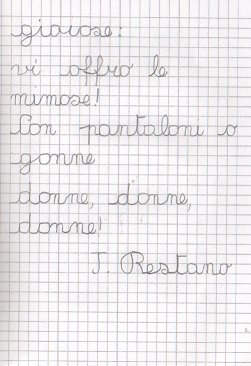 giocose:
vi offro le
mimose!
Con pantaloni o
gonne
donne, donne,
donne!
T. Restano